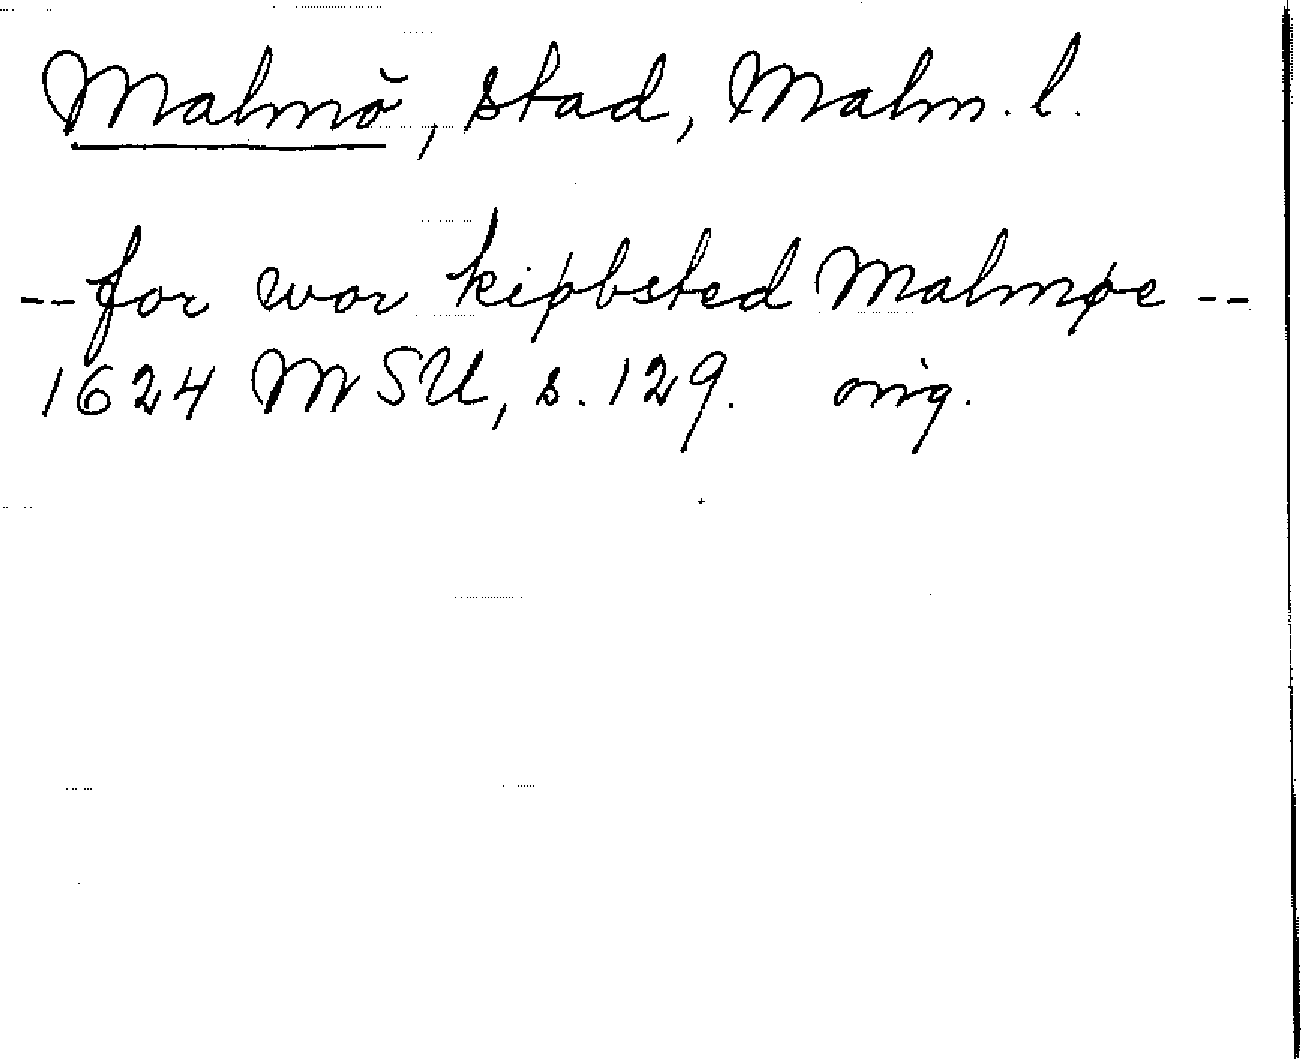 Malmö, stad, Malm. l.
-- for wor kiøbsted Malmøe --
1624 MSU, s. 129. orig.